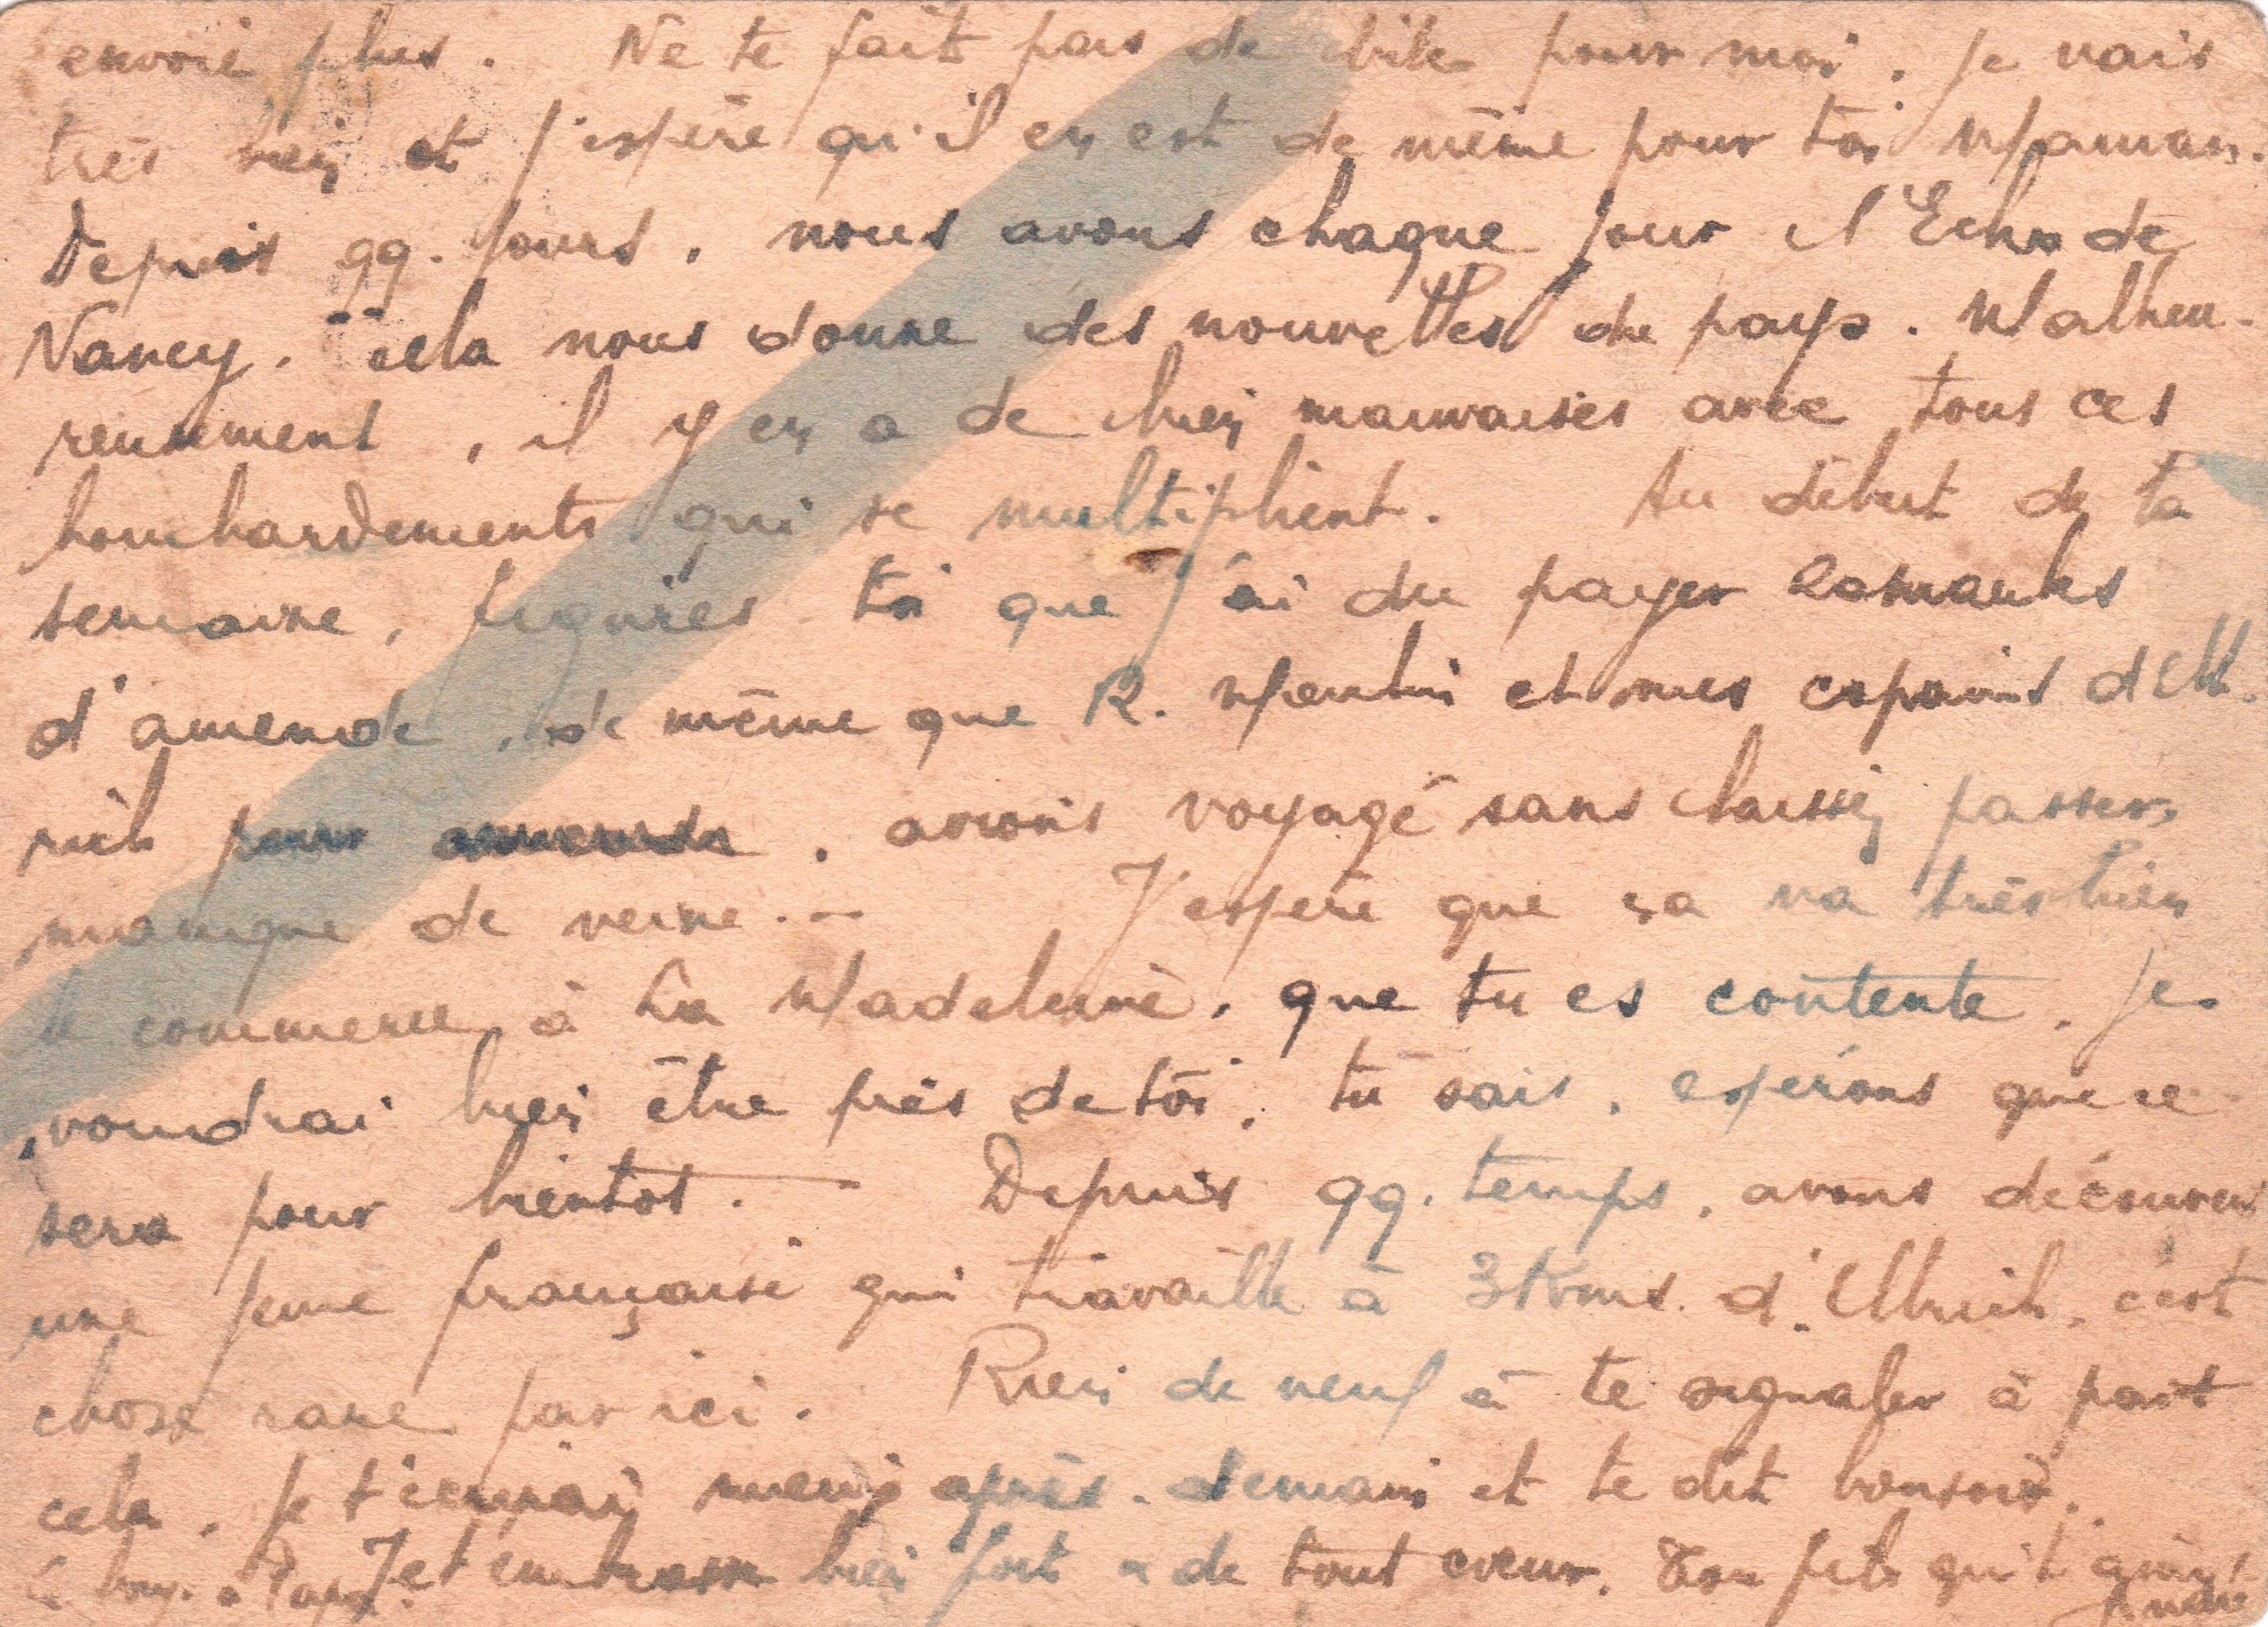 envoie plus. Ne te fait pas de bile pour moi. Je vais
très bien et j'espère qu'il en est de même pour toi Maman.
Depuis qq. jours, nous avons chaque jour l'Echo de
Nancy. cela nous donne des nouvelles du pays. Malheu-
reusement, il y en a de bien mauvaises avec tous ces
bombardements qui se multiplient. Au début de la
semaine, figures toi que j'ai du payer marks
d'amende, de même que R. et mes copains d'Ell-
rich pour, avons voyagé sans laissez passer,
manque de veine. - J'espère que ça va très bien
le commerce à La Madeleine, que tu es contente. Je
voudrai bien être près de toi, tu sais, espérons que ce
sera pour bientot. - Depuis qq. temps, avons découvert
une jeune française qui travaille à 3 Kms. d'Ellrich, c'est
chose rare par ici. Rien de neuf à te signaler à part
cela. Je après-demain et te dit bonsoir.
à Papa. Je t'embrasse bien fort de tout coeur. Ton fils qui t'aime
André